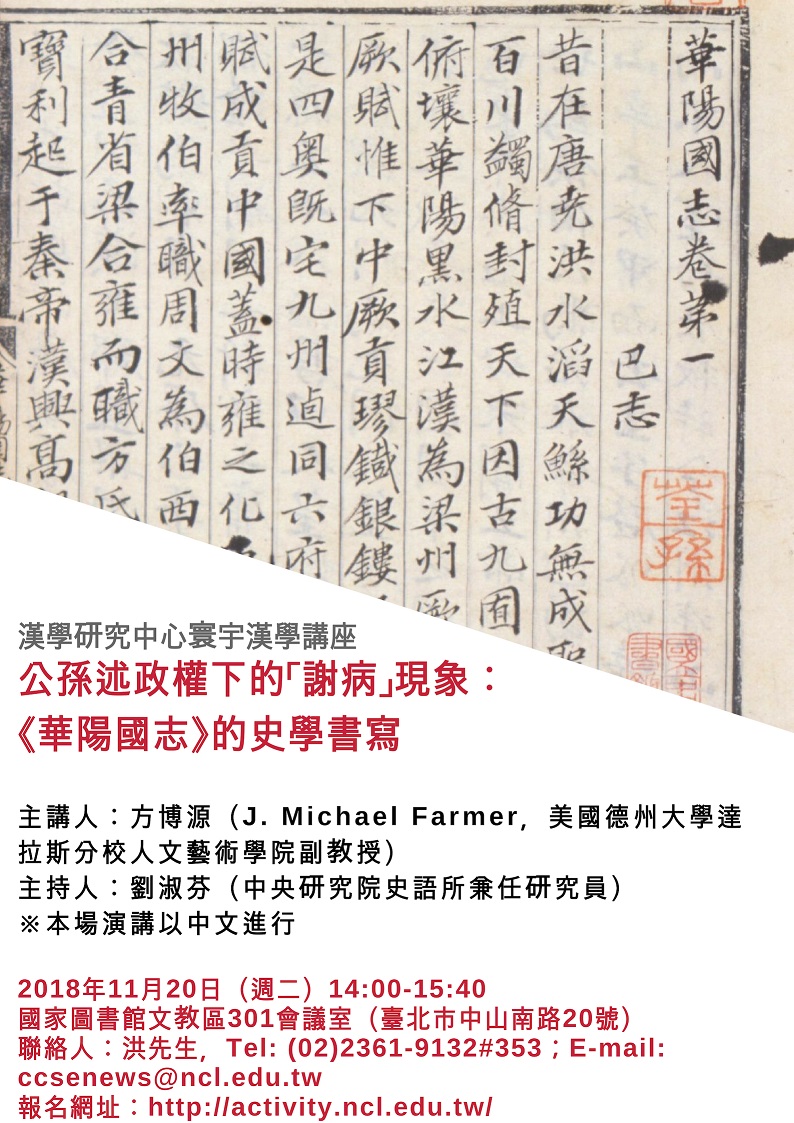 華陽國志卷第一
巴志
昔在唐堯洪水滔天鯀功無成聖
百川蠲脩封殖天下因古九囿
俯壤華陽黑水江漢為梁州厥
厥賦惟下中厥貢璆鐡銀鏤
是四奥既宅九州逌同六府
賦成貢中國蓋時雍之化
州牧伯率職周文為伯西
合青省梁合雍而職方氏
寶利起于秦帝漢興髙
荃孫
漢學研究中心寰宇漢學講座
公孫述政權下的「謝病」現象：
《華陽國志》的史學書寫
主講人：方博源（J. Michael Farmer，美國德州大學達
拉斯分校人文藝術學院副教授）
主持人：劉淑芬（中央研究院史語所兼任研究員）
※本場演講以中文進行
2018年11月20日（週二）14:00-15:40
國家圖書館文教區301會議室（臺北市中山南路20號）
聯絡人：洪先生，Tel: (02)2361-9132#353；E-mail:
ccsenews@ncl.edu.tw
報名網址：http://activity.ncl.edu.tw/